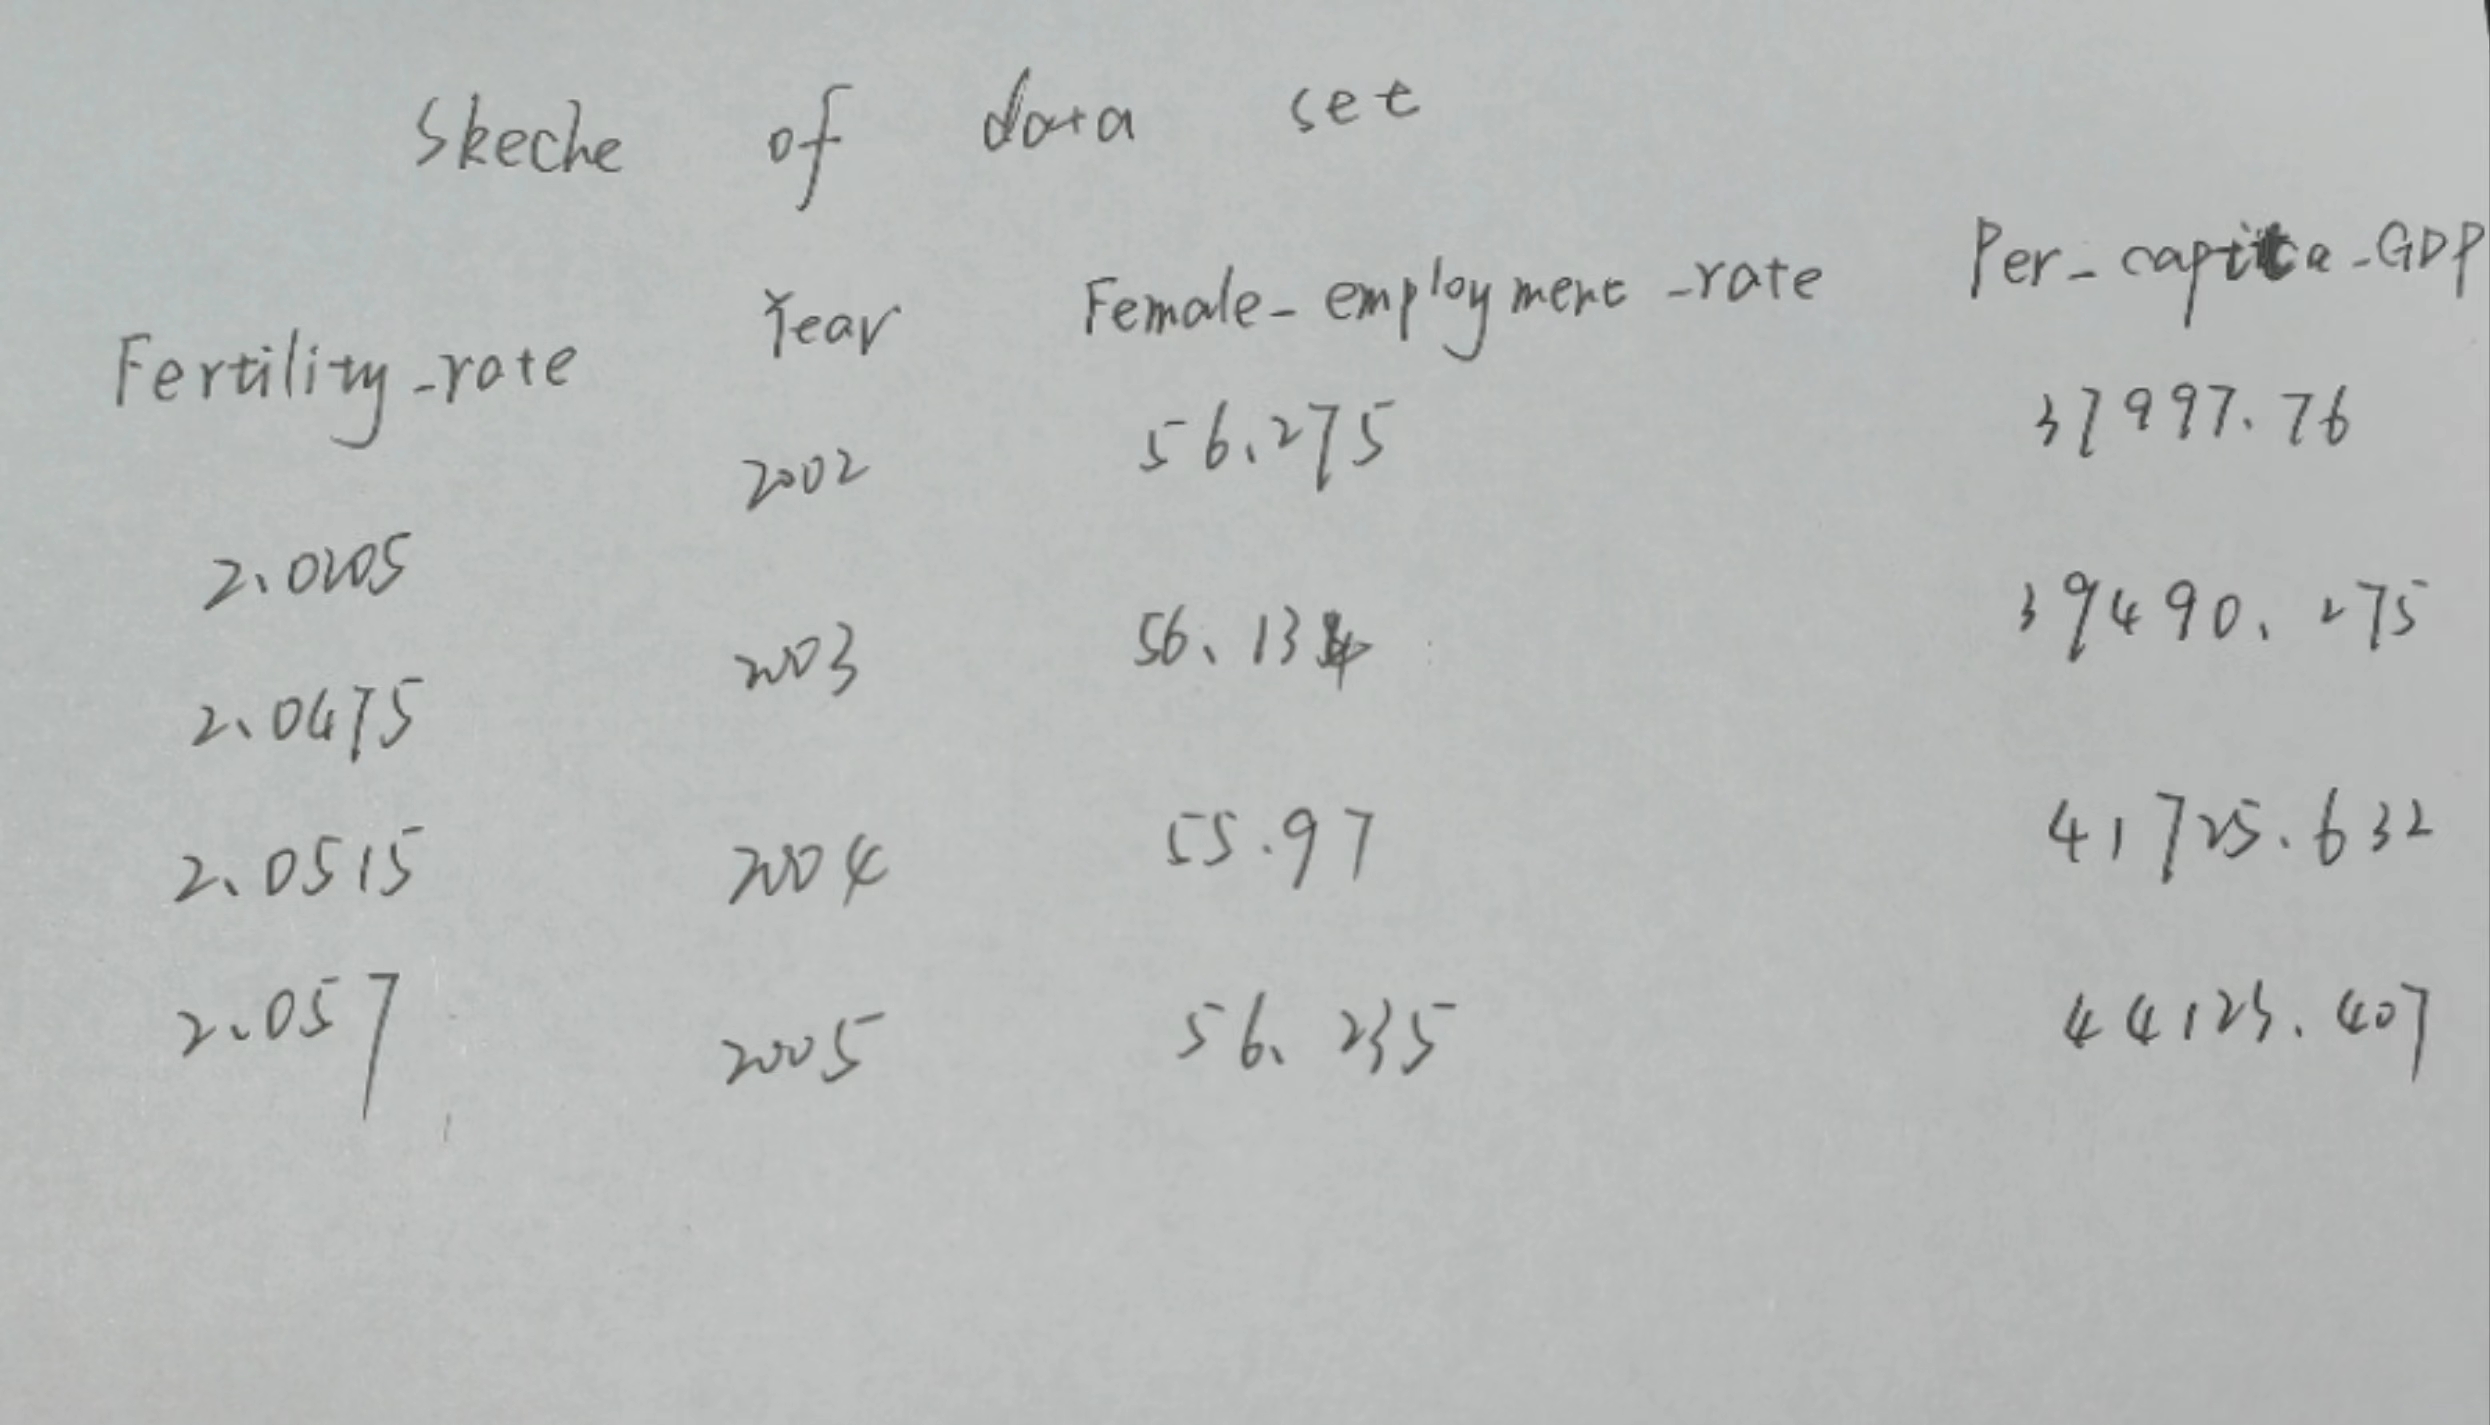 Skeche of data set
Fertility_rate Year Female_employment_rate Per_capita_GDP
2.0205 2002 56.275 37997.76
2.0475 2003 56.134 39490.275
2.0515 2004 55.97 41725.632
2.057 2005 56.235 44123.407